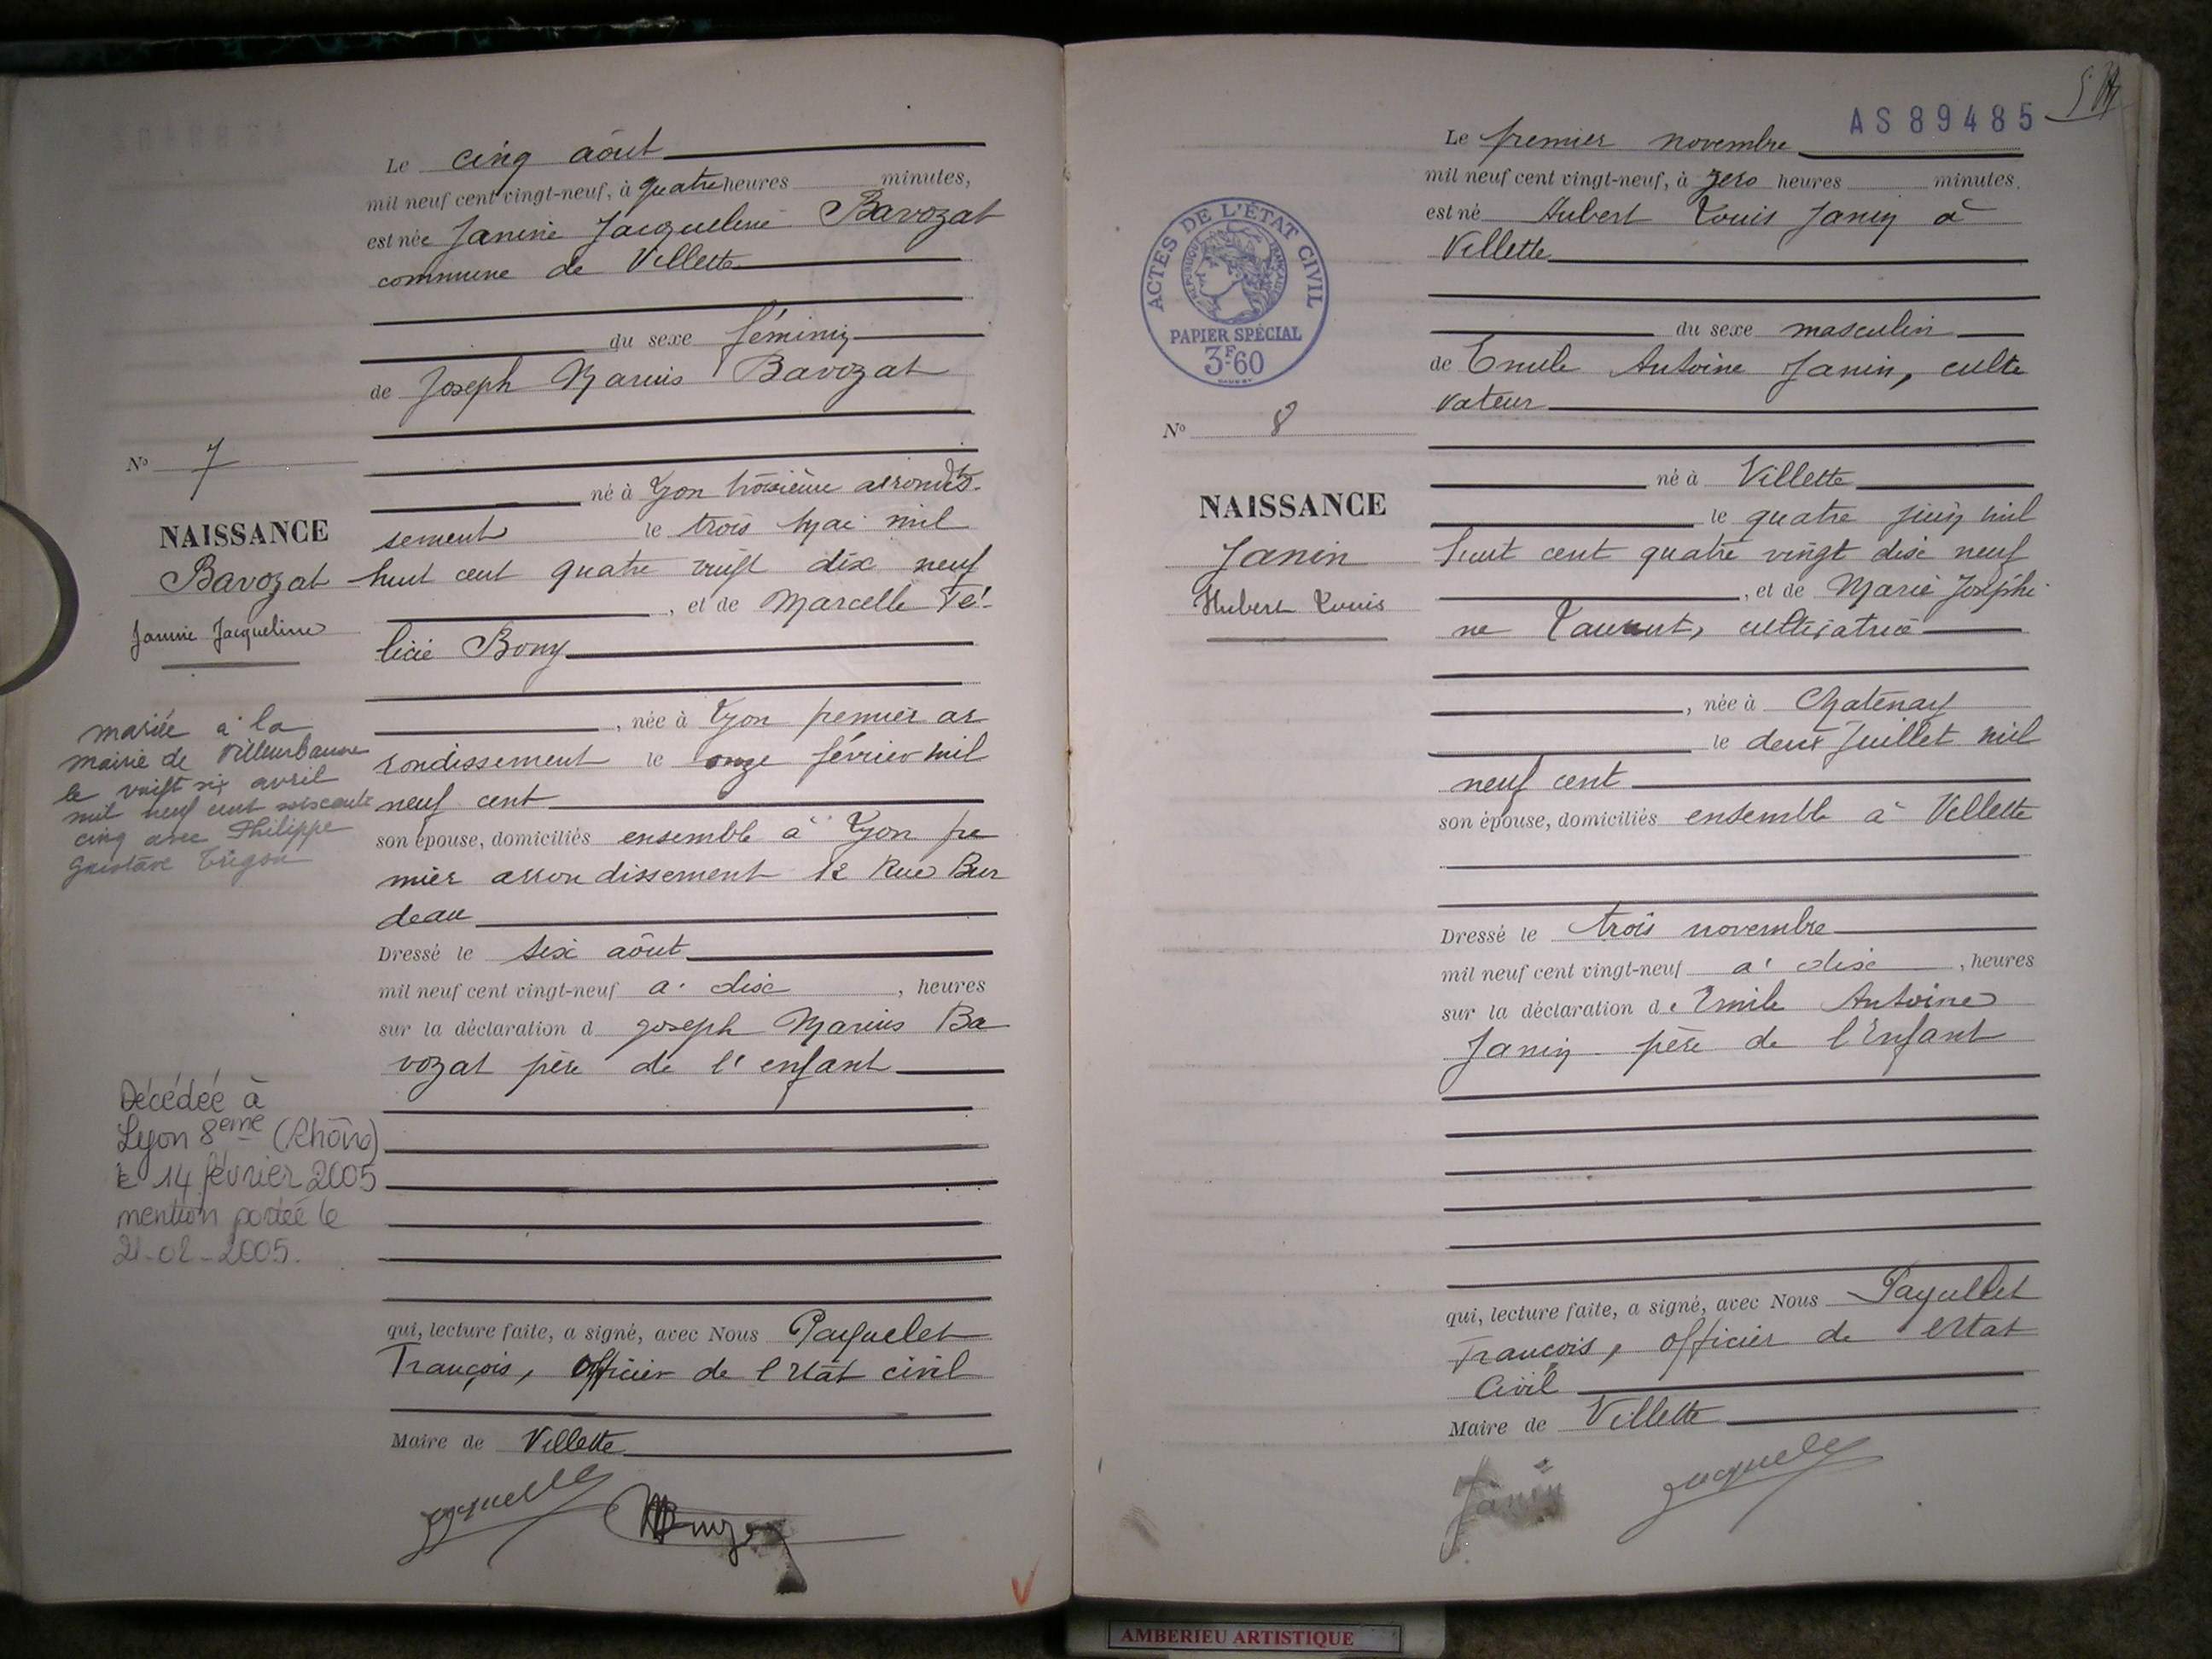 Le cinq août
mil neuf cent vingt-neuf, à quatre heures minutes,
est née Janine Jacqueline Bavozat
commune de Villette
du sexe féminin
de Joseph Marius Bavozat
né à Lyon troisième arrondis-
sement le trois Mai mil
huit cent quatre vingt dix neuf
, et de Marcelle Fé-
licie Bony
, née à Lyon premier ar
rondissement le onze février mil
neuf cent
son épouse, domiciliés ensemble à Lyon pre
mier arrondissement 12 Rue Bur
deau
Dressé le six août
mil neuf cent vingt-neuf à dix , heures
sur la déclaration d Joseph Marius Ba
vozat père de l'enfant
qui, lecture faite, a signé, avec Nous Payuelet
François, Officier de l'Etat civil
Maire de Villette
No 7
NAISSANCE
Bavozat
Janine Jacqueline
mariée à la
mairie de Villeurbanne
le vingt six avril
mil neuf cent soixante
cinq avec Philippe
Gustave
Décédée à
Lyon 8eme (Rhône)
le 14 février 2005
mention portée le
21-02-2005.
AS89485
Le premier novembre
mil neuf cent vingt-neuf, à zero heures minutes.
est né Hubert Louis Janin à
Villette
du sexe masculin
de Emile Antoine Janin, culti
vateur
né à Villette
le quatre juin mil
huit cent quatre vingt dix neuf
, et de Marie Joséphi
ne Laurent, cultivatrice
, née à Chatenay
le deux Juillet mil
neuf cent
son épouse, domiciliés ensemble à Villette
Dressé le trois novembre
mil neuf cent vingt-neuf à dix , heures
sur la déclaration de Emile Antoine
Janin père de l'Enfant
qui, lecture faite, a signé, avec Nous Payuelet
François, officier de l'Etat
Civil
Maire de Villette
Janin
ACTES DE L'ÉTAT CIVIL
RÉPUBLIQUE FRANÇAISE
PAPIER SPÉCIAL
3F60
No 8
NAISSANCE
Janin
Hubert Louis
AMBERIEU ARTISTIQUE